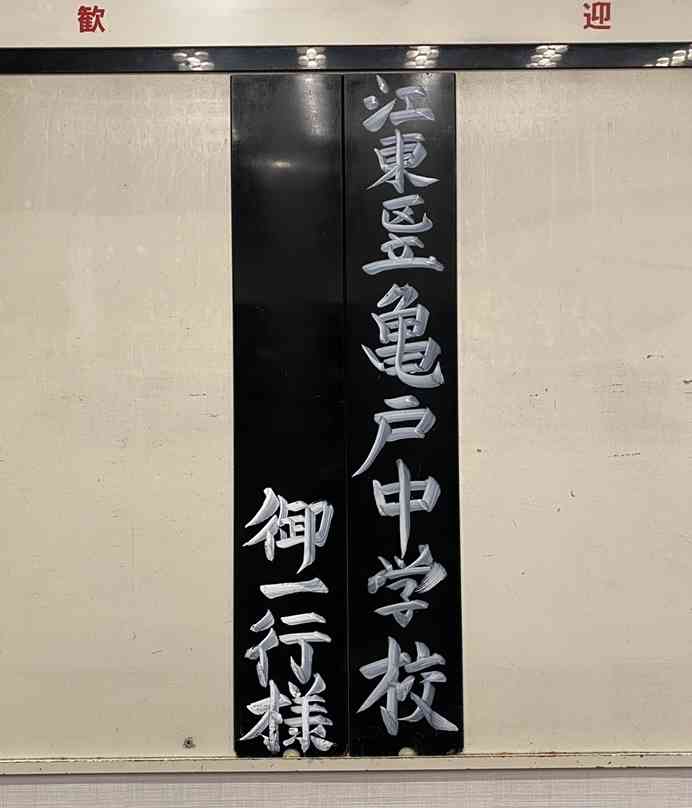 歓迎
江東区立亀戸中学校
御一行様